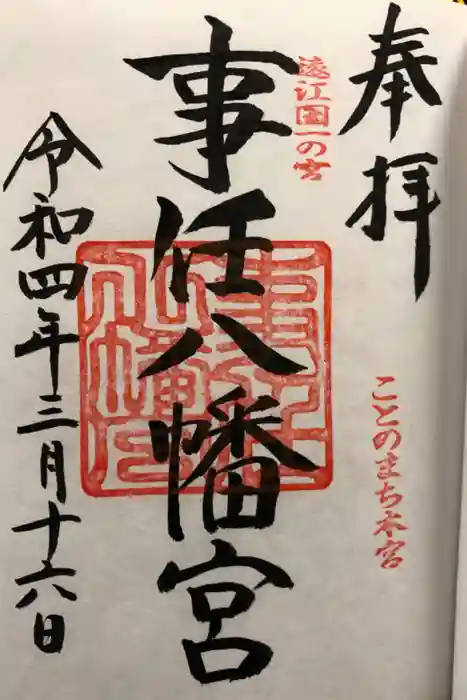 奉拝
遠江国一の宮
ことのまち本宮
事任八幡宮
令和四年三月十六日